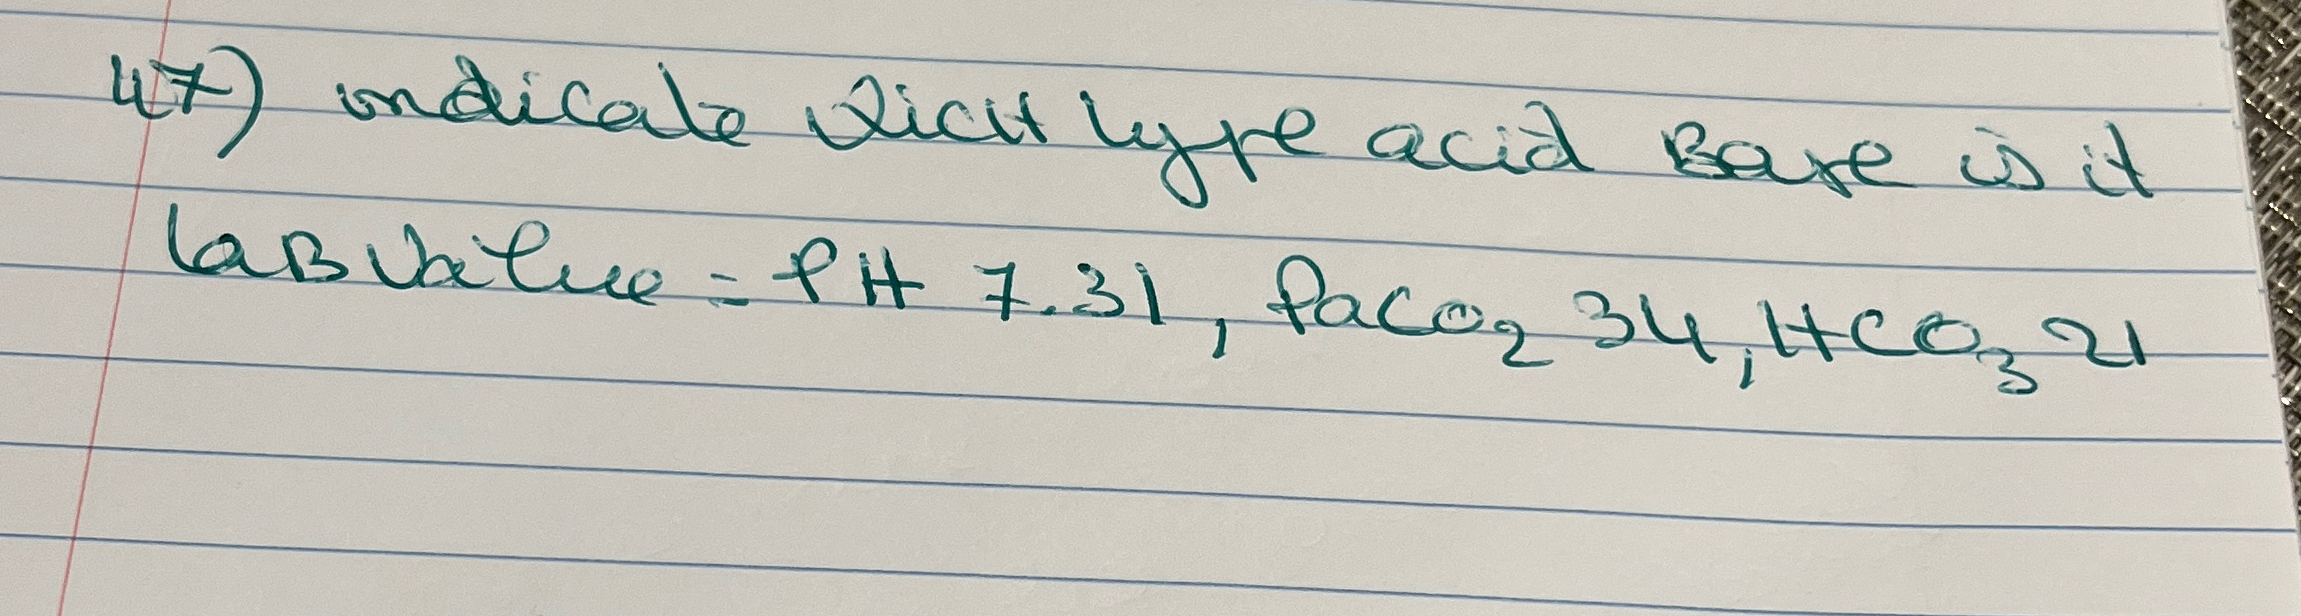 47) indicate wich type acid Base is it
Lab Value = PH 7.31, PaCO₂ 34, HCO₃ 21